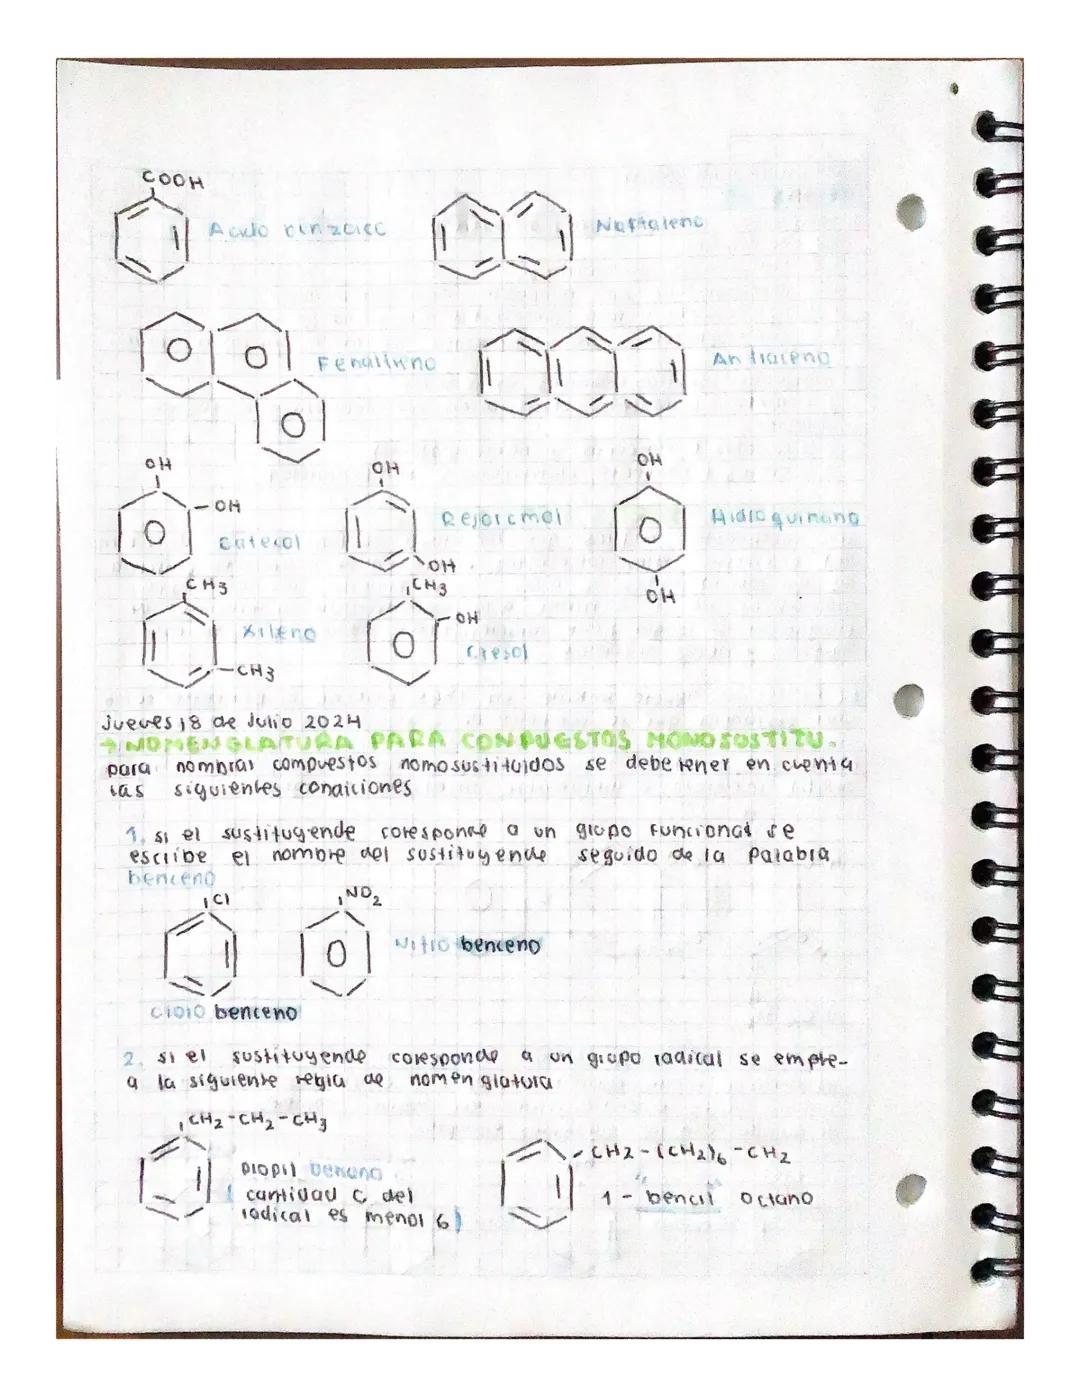 COOH
Acido benzoico
Naftaleno
Antraceno
OH
OH
Catecol
OH
OH
OH
Hidroquinona
OH
CH3
Xileno
CH3
CH3
OH
Cresol
Jueves 18 de Julio 2024
→ NOMENGLATURA PARA CONPUESTOS MONOSUSTITU.
para nombrar compuestos nomosustituidos se debe tener en cuenta
las siguientes condiciones
1. si el sustituyende coresponde a un grupo funcional se
escribe el nombre del sustituyende seguido de la palabra
benceno
Cl
NO2
Nitro benceno
cloro benceno
2. si el sustituyende coresponde a un grupo radical se emple-
a la siguiente regla de nomenglatura
CH2-CH2-CH3
propil benceno
( cantidad C del
radical es menor 6)
CH2-(CH2)6-CH2
1- bencil octano